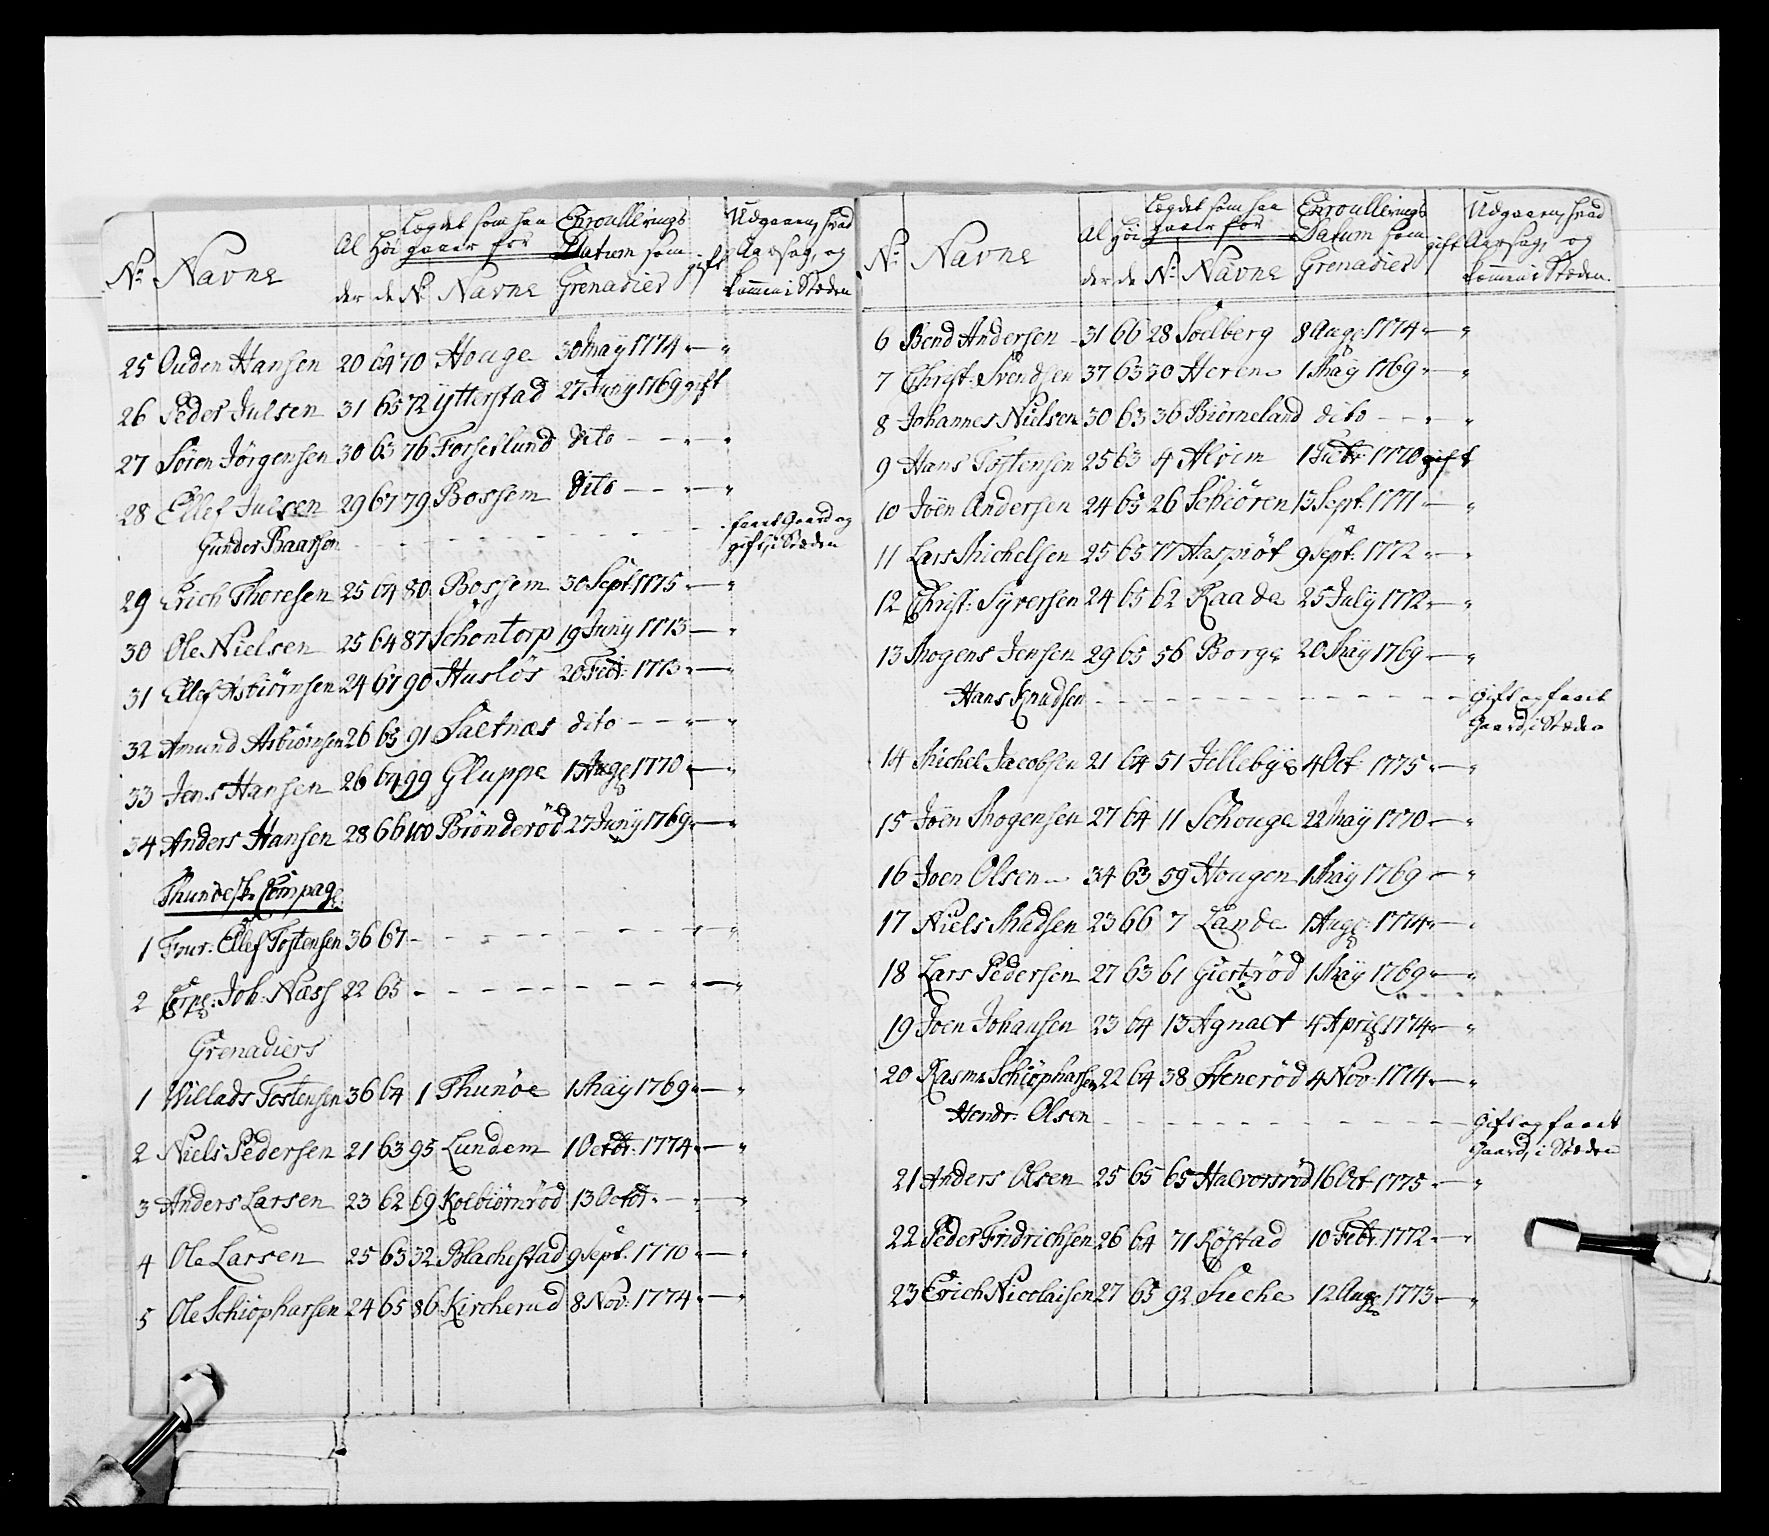 No Navne Al der Höi de Lægdet som han gaaer for No Navne Enroullerings Datum som Grenadier gift Udgaaen, hvad Aarsag, og kommen i Stæden
25 Ouden Hansen 20 64 70 Houge 30 May 1774 — "
26 Peder Julsen 31 65 72 Ytterstad 27 Juny 1769 gift
27 Sören Jörgensen 30 63 76 Forsedlund dito — — "
28 Ellef Julsen 29 67 79 Bossem dito — — "
Gunder Baarsen - - - - faaet Gaard og gift, i Stæden
29 Erich Thoresen 25 64 80 Bossem 30 Sept 1775 — "
30 Ole Nielsen 25 64 87 Schöntorp 19 Juny 1773 — "
31 Ellef Asbiörnsen 24 67 90 Huslös 20 Febr: 1773 — "
32 Amund Asbiörnsen 26 65 91 Saltnæs dito — — "
33 Jens Hansen 26 64 99 Gluppe 1 Aug 1770 — "
34 Anders Hansen 28 66 100 Biönderöd 27 Juny 1769 — "
Thunöeske Compag
1 Four: Ellef Tostensen 36 67 - - - -
2 Corpl: Joh: Næss 22 65 - - - -
Grenadiers
1 Willads Tostensen 36 64 1 Thunöe 1 May 1769 — "
2 Niels Pedersen 21 63 95 Lundem 1 Octbr: 1774 — "
3 Anders Larsen 23 62 69 Kolbiörnröd 13 Octbr. — "
4 Ole Larsen 25 63 32 Blachestad 9 Sept. 1770 — "
5 Ole Schiöpharsen 24 65 86 Kircherud 8 Nov: 1774 — "
No: Navne Al der Höi de Lægdet som han gaaer for No Navne Enroullerings Datum som Grenadier gift Udgaaen, hvad Aarsag, og kommen i Stæden.
6 Bend Andersen 31 66 28 Soelberg 8 Aug: 1774 — "
7 Christ: Svendsen 37 63 30 Heren 1 May 1769 — "
8 Johannes Nielsen 30 63 36 Biörneland dito - - "
9 Hans Tostensen 25 63 4 Alvim 1 Febr: 1770 gift
10 Jöen Andersen 24 65 26 Schiören 13 Sept: 1771 — "
11 Lars Michelsen 25 65 77 Haspröt 9 Sept: 1772 — "
12 Christ: Syversen 24 65 62 Raade 25 July 1772 — "
13 Mogens Jensen 29 65 56 Borge 20 May 1769 — "
Hans Knudsen - - - - Gift og faaet Gaard, i Stæden
14 Michel Jacobsen 21 64 51 Jellebye 4 Oct 1775 — "
15 Jöen Mogensen 27 64 11 Schouge 22 May 1770 — "
16 Joen Olsen 34 63 59 Hougen 1 May 1769 — "
17 Niels Madsen 23 66 7 Lande 1 Aug: 1774 — "
18 Lars Pedersen 27 63 61 Giertröd 1 May 1769 — "
19 Joen Johansen 23 64 13 Agnalt 4 April 1774 — "
20 Rasm: Schiöpharsen 22 64 38 Steneröd 4 Nov: 1774 — "
Hendr: Olsen - - - - Gift og faaet Gaard, i Stæden
21 Anders Olsen 25 65 65 Halvorsröd 16 Oct 1775 — "
22 Peder Fridrichsen 26 64 71 Köstad 10 Febr. 1772 — "
23 Erich Nicolaisen 27 65 92 Sieche 12 Aug 1773 — "